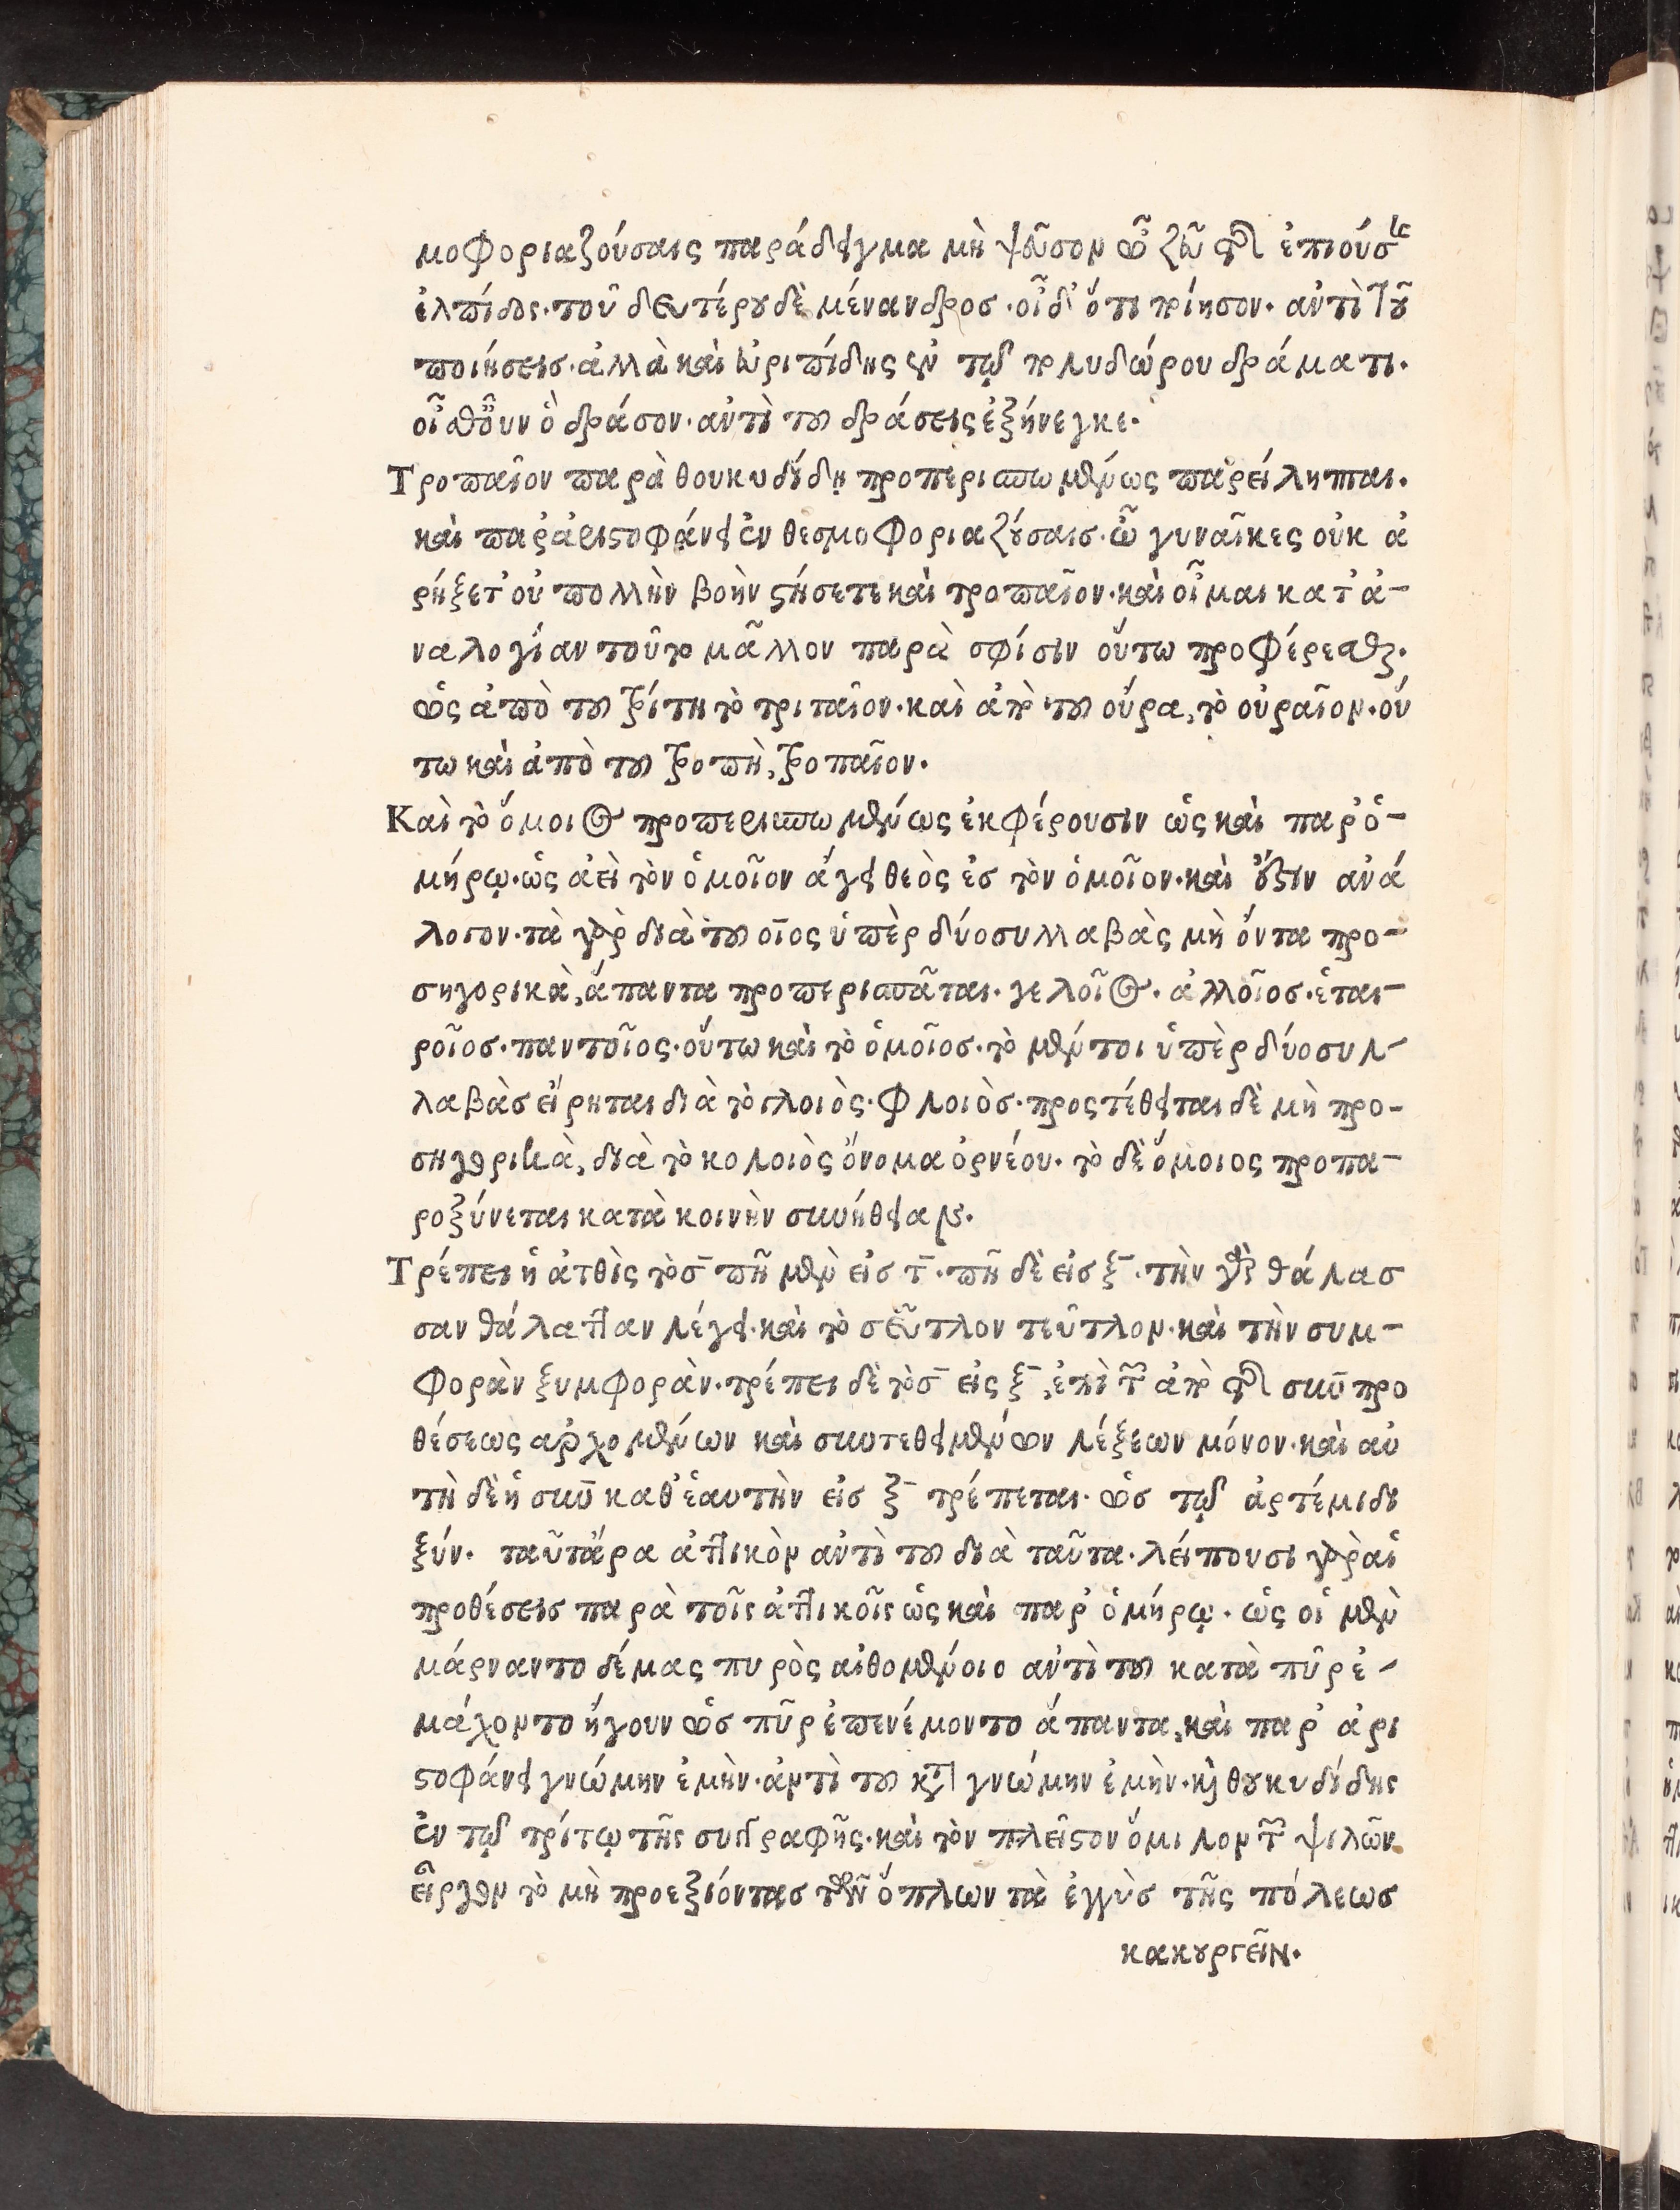 μοφοριαζούσαις παράδειγμα μὴ ψεῦσον ὦ ζεῦ τῆς ἐπιούσης
ἐλπίδος· τοῦ δευτέρου δὲ μένανδρος· οἶδ' ὅτι ποίησον· αὐτὶ τοῦ
ποιήσεις· ἀλλὰ καὶ εὐριπίδης ἐν τῷ πολυδώρου δράματι·
οἶσθ' οὖν ὃ δράσον· αὐτὶ τοῦ δράσεις ἐξήνεγκε·
Τροπαῖον παρὰ θουκυδίδῃ προπερισπωμένως παρείληπται·
καὶ παρ' ἀριστοφάνει ἐν θεσμοφοριαζούσαις· ὦ γυναῖκες οὐκ ἀ
ρήξετ' οὐ πολλὴν βοὴν στήσετε καὶ τροπαῖον· καὶ οἶμαι κατ' ἀ-
ναλογίαν τοῦτο μᾶλλον παρὰ σφίσιν οὕτω προφέρεσθαι·
ὡς ἀπὸ τοῦ τρίτη τὸ τριταῖον· καὶ ἀπὸ τοῦ οὔρα, τὸ οὐραῖον· οὕ
τω καὶ ἀπὸ τοῦ τροπὴ, τροπαῖον·
Καὶ τὸ ὅμοιος προπερισπωμένως ἐκφέρουσιν ὡς καὶ παρ' ὁ-
μήρῳ· ὡς ἀεὶ τὸν ὁμοῖον ἄγει θεὸς ἐς τὸν ὁμοῖον· καὶ ἔστιν ἀνά
λογον· τὰ γὰρ διὰ τοῦ οῖος ὑπὲρ δύο συλλαβὰς μὴ ὄντα προ-
σηγορικὰ, ἅπαντα προπερισπᾶται· γελοῖος· ἀλλοῖος· ἑται-
ροῖος· παντοῖος· οὕτω καὶ τὸ ὁμοῖος· τὸ μέντοι ὑπὲρ δύο συλ-
λαβὰς εἴρηται διὰ τὸ γλοιὸς· φλοιὸς· προστέθειται δὲ μὴ προ-
σηγορικὰ, διὰ τὸ κολοιὸς ὄνομα ὀρνέου· τὸ δὲ ὅμοιος προπα-
ροξύνεται κατὰ κοινὴν συνήθειαν·
Τρέπει ἡ ἀτθὶς τὸ σ̄ πῆ μὲν εἰς τ̄· πῆ δὲ εἰς ξ̄· τὴν γὰρ θάλασ
σαν θάλατταν λέγει· καὶ τὸ σεῦτλον τεῦτλον· καὶ τὴν συμ-
φορὰν ξυμφορὰν· τρέπει δὲ τὸ σ̄ εἰς ξ̄, ἐπὶ τῶν ἀπὸ τῆς σὺν προ
θέσεως ἀρχομένων καὶ συντεθειμένων λέξεων μόνον· καὶ αὐ
τὴ δὲ ἡ σὺν καθ' ἑαυτὴν εἰς ξ̄ τρέπεται· ὡς τῷ ἀρτέμιδι
ξύν· ταῦτ' ἄρα ἀττικὸν αὐτὶ τοῦ διὰ ταῦτα· λείπουσι γὰρ αἱ
προθέσεις παρὰ τοῖς ἀττικοῖς ὡς καὶ παρ' ὁμήρῳ· ὡς οἱ μὲν
μάρναντο δέμας πυρὸς αἰθομένοιο αὐτὶ τοῦ κατὰ πῦρ ἐ-
μάχοντο ἤγουν ὡς πῦρ ἐπενέμοντο ἅπαντα, καὶ παρ' ἀρι
στοφάνει γνώμην ἐμὴν· ἀντὶ τοῦ κατὰ γνώμην ἐμὴν· καὶ θουκυδίδης
ἐν τῷ τρίτῳ τῆς συγγραφῆς· καὶ τὸν πλεῖστον ὅμιλον τῶν ψιλῶν
εἶργον τὸ μὴ προεξιόντας τῶν ὅπλων τὰ ἐγγὺς τῆς πόλεως
κακουργεῖν·